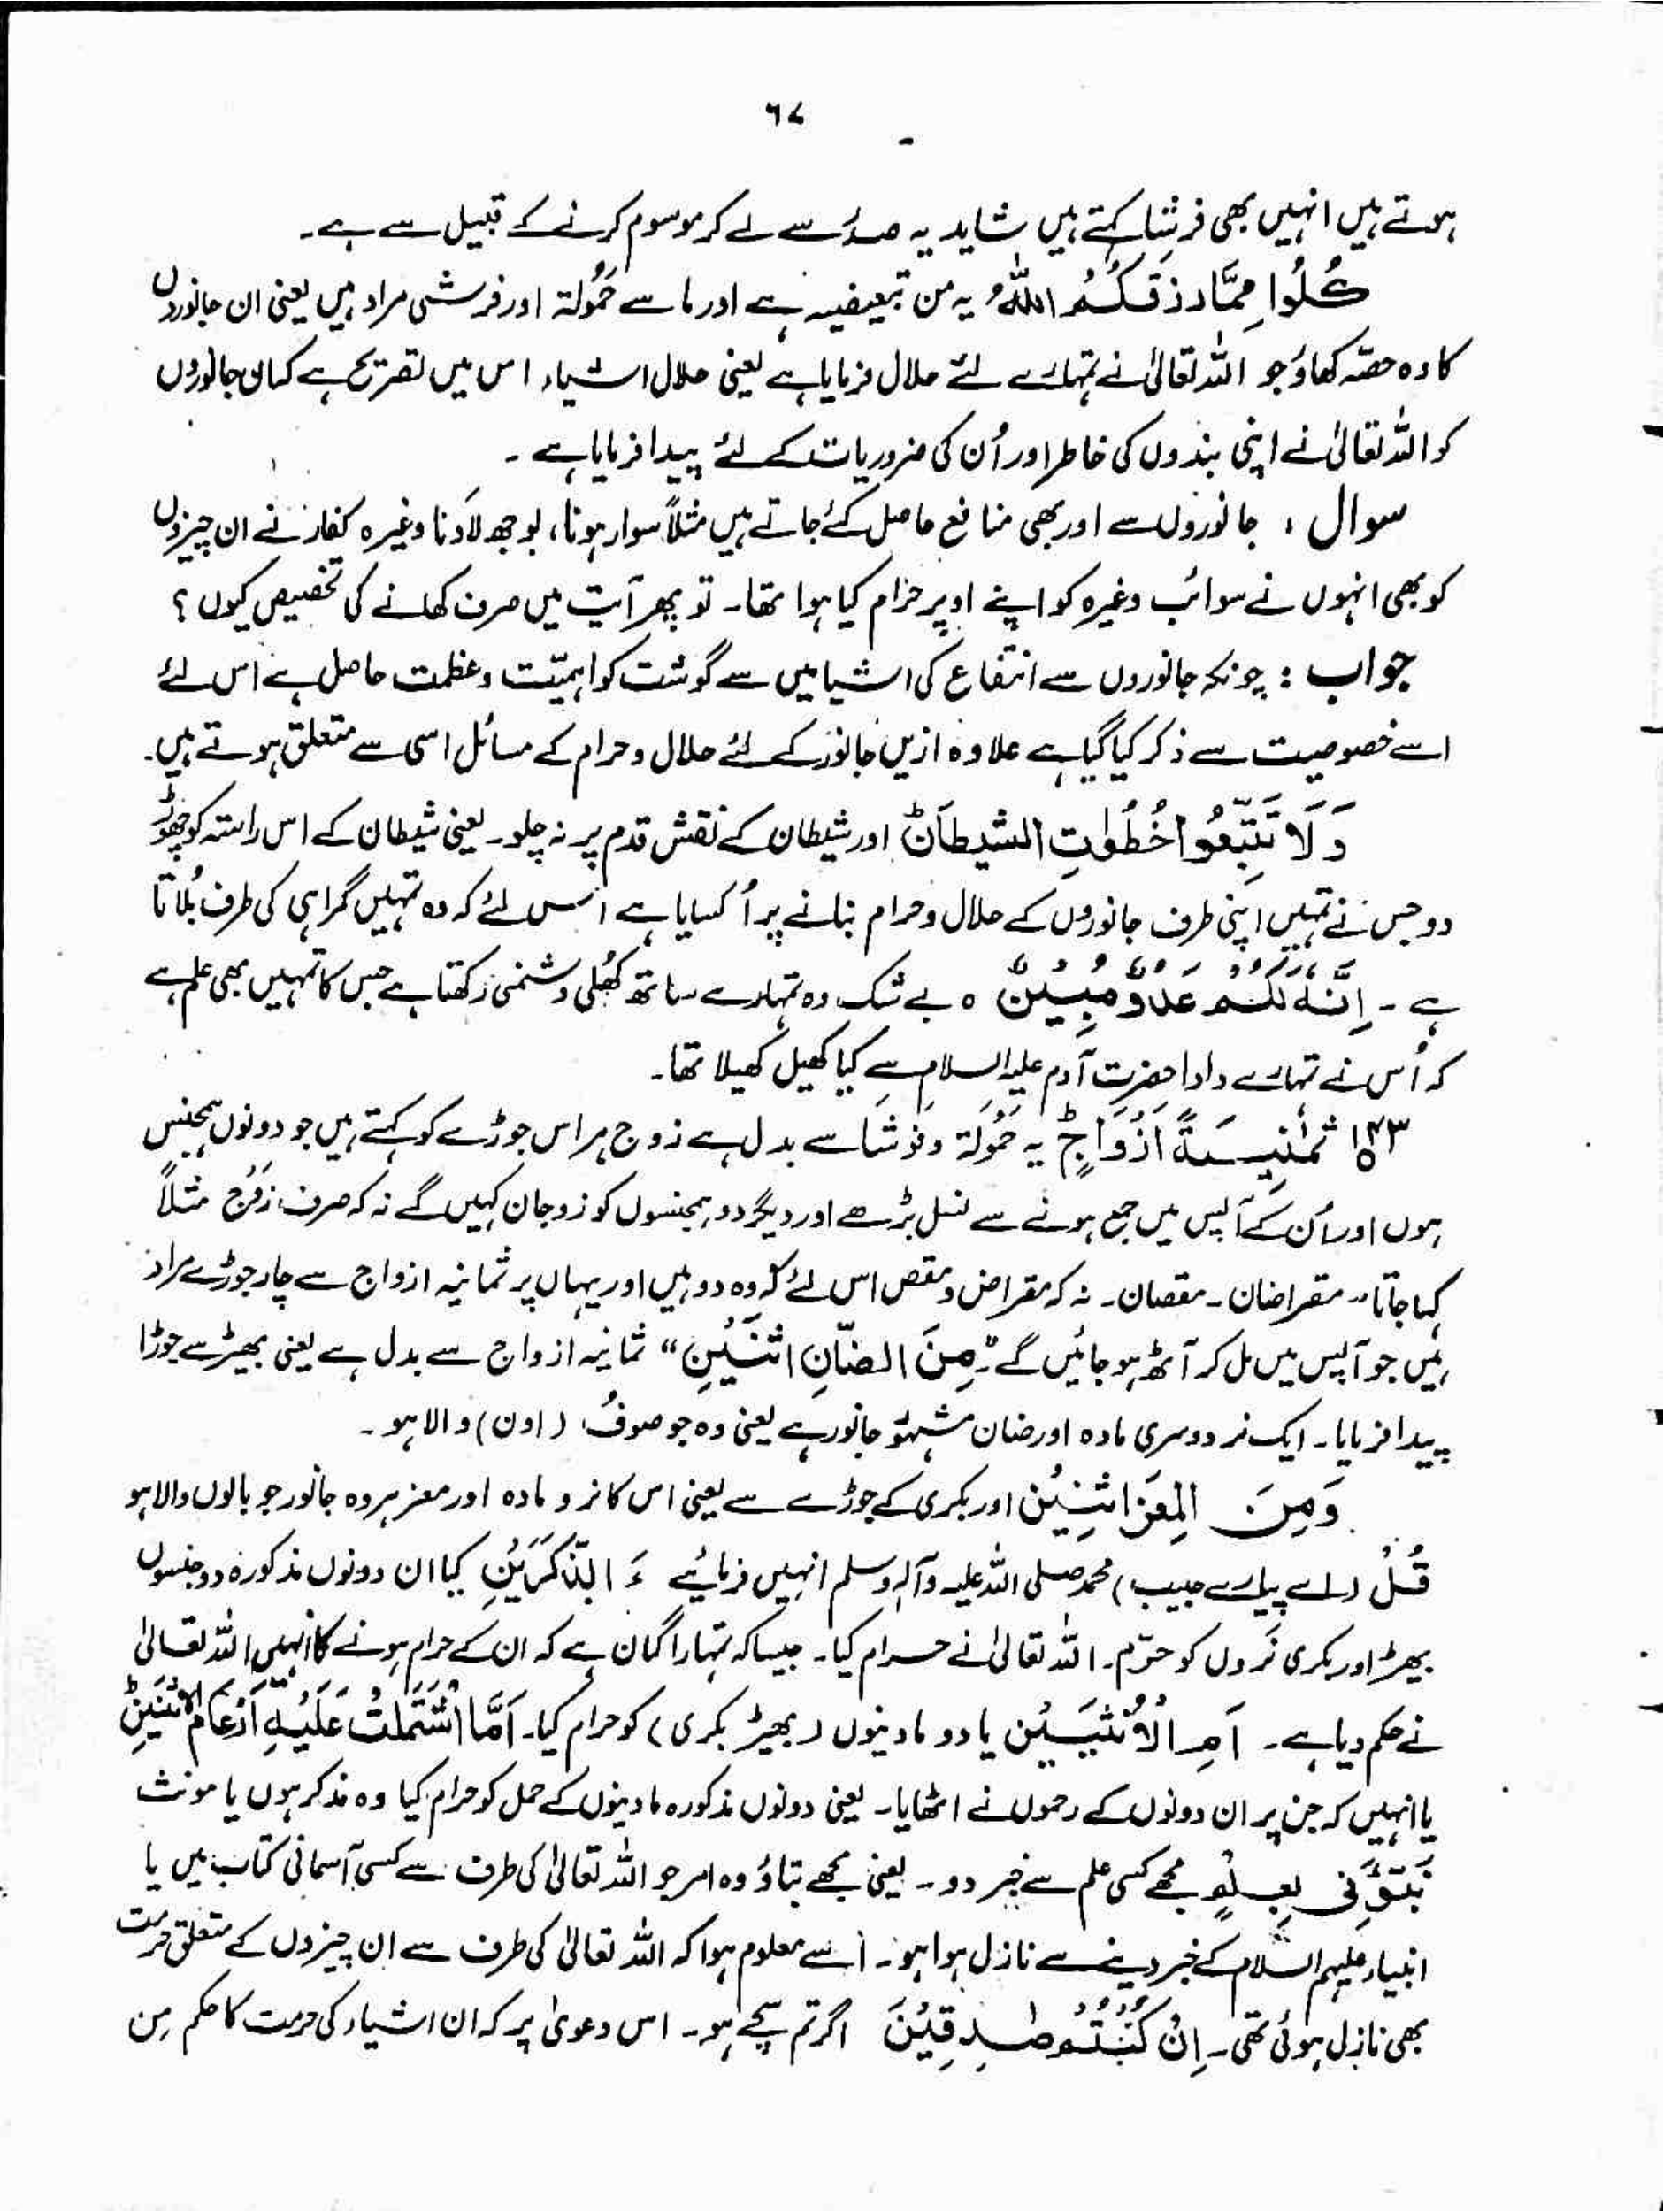 ٦٧
ہوتے ہیں انہیں بھی فرشا کہتے ہیں شاید یہ صدر سے لے کر موسوم کرنے کے قبیل سے ہے۔
كُلُوا مِمَّا رزقكُمُ اللّٰهُ یہ من تبعیضیہ ہے اور ما سے حَمُولۃ اور فرشی مراد ہیں یعنی ان جانوروں
کا وہ حصّہ کھاؤ جو اللہ تعالیٰ نے تمہارے لئے حلال فرمایا ہے یعنی حلال اشیاء اس میں تصریح ہے کہ ان جانوروں
کو اللہ تعالیٰ نے اپنی بندوں کی خاطر اور اُن کی ضروریات کے لئے پیدا فرمایا ہے ۔
سوال : جانوروں سے اور بھی منافع حاصل کئے جاتے ہیں مثلاً سوار ہونا، بوجھ لادنا وغیرہ کفار نے ان چیزوں
کو بھی انہوں نے سوائب وغیرہ کو اپنے اوپر حرام کیا ہوا تھا۔ تو پھر آیت میں صرف کھانے کی تخصیص کیوں ؟
جواب : چونکہ جانوروں سے انتفاع کی اشیا میں سے گوشت کو اہمیّت و عظمت حاصل ہے اس لئے
اسے خصوصیت سے ذکر کیا گیا ہے علاوہ ازیں جانور کے لئے حلال و حرام کے مسائل اسی سے متعلق ہوتے ہیں۔
وَلَا تَتَّبِعُوا خُطُوٰتِ الشیطان اور شیطان کے نقش قدم پر نہ چلو۔ یعنی شیطان کے اس راستہ کو چھوڑ
دو جس نے تمہیں اپنی طرف جانوروں کے حلال و حرام بنانے پر اُکسایا ہے اس لئے کہ وہ تمہیں گمراہی کی طرف بُلاتا
ہے ۔ اِنَّهٗ لَكُمْ عَدُوٌّ مُّبِيْنٌ ہ بے شک وہ تمہارے ساتھ کھُلی دشمنی رکھتا ہے جس کا تمہیں بھی علم ہے
کہ اُس نے تمہارے دادا حضرت آدم علیہ السلام سے کیا کھیل کھیلا تھا۔
۱۴۳ ثَمٰنِيَةَ اَزْوَاجٍ یہ حَمُولَۃ وفرشا سے بدل ہے زوج ہر اس جوڑے کو کہتے ہیں جو دونوں ہمجنس
ہوں اور اُن کے آپس میں جمع ہونے سے نسل بڑھے اور دیگر دو ہمجنسوں کو زوجان کہیں گے نہ کہ صرف زَوج مثلاً
کہا جاتا ہے مقراضان۔ مقصان۔ نہ کہ مقراض و مقص اس لئے کہ وہ دو ہیں اور یہاں پر ثمانیہ ازواج سے چار جوڑے مراد
ہیں جو آپس میں مل کر آٹھ ہو جائیں گے "مِنَ الضَّانِ اثْنَيْنِ" ثمانیہ ازواج سے بدل ہے یعنی بھیڑ سے جوڑا
پیدا فرمایا۔ ایک نر دوسری مادہ اور ضان مشہور جانور ہے یعنی وہ جو صوف (اون) والا ہو ۔
وَمِنَ المِعَزِ اثْنَيْنِ اور بکری کے جوڑے سے یعنی اس کا نر و مادہ اور معز ہر وہ جانور جو بالوں والا ہو
قُلْ (اے پیارے حبیب) محمد صلی اللہ علیہ وآلہ وسلم انہیں فرمائیے ءَ الذَّكَرَيْنِ کیا ان دونوں مذکورہ دو جنسوں
بھیڑ اور بکری نَروں کو حرّم۔ اللہ تعالیٰ نے حرام کیا۔ جیسا کہ تمہارا گمان ہے کہ ان کے حرام ہونے کا انہیں اللہ تعالیٰ
نے حکم دیا ہے۔ اَمِ الْاُنْثَيَيْنِ یا دو مادینوں (بھیڑ بکری) کو حرام کیا۔ اَمَّا اشْتَمَلَتْ عَلَيْهِ اَرْحَامُ الْاُنْثَيَيْنِ
یا انہیں کہ جن پر ان دونوں کے رحموں نے اٹھایا۔ یعنی دونوں مذکورہ مادینوں کے حمل کو حرام کیا وہ مذکر ہوں یا مونث
نَبِّئُوْنِیْ بِعِلْمٍ مجھے کسی علم سے خبر دو ۔ یعنی مجھے بتاؤ وہ امر جو اللہ تعالیٰ کی طرف سے کسی آسمانی کتاب میں یا
انبیاء علیہم السلام کے خبر دینے سے نازل ہوا ہو ۔ اُسے معلوم ہوا کہ اللہ تعالیٰ کی طرف سے ان چیزوں کے متعلق حرمت
بھی نازل ہوئی تھی۔ اِنْ كُنْتُمْ صٰدِقِيْنَ اگر تم سچے ہو۔ اس دعویٰ پر کہ ان اشیاء کی حرمت کا حکم مِن